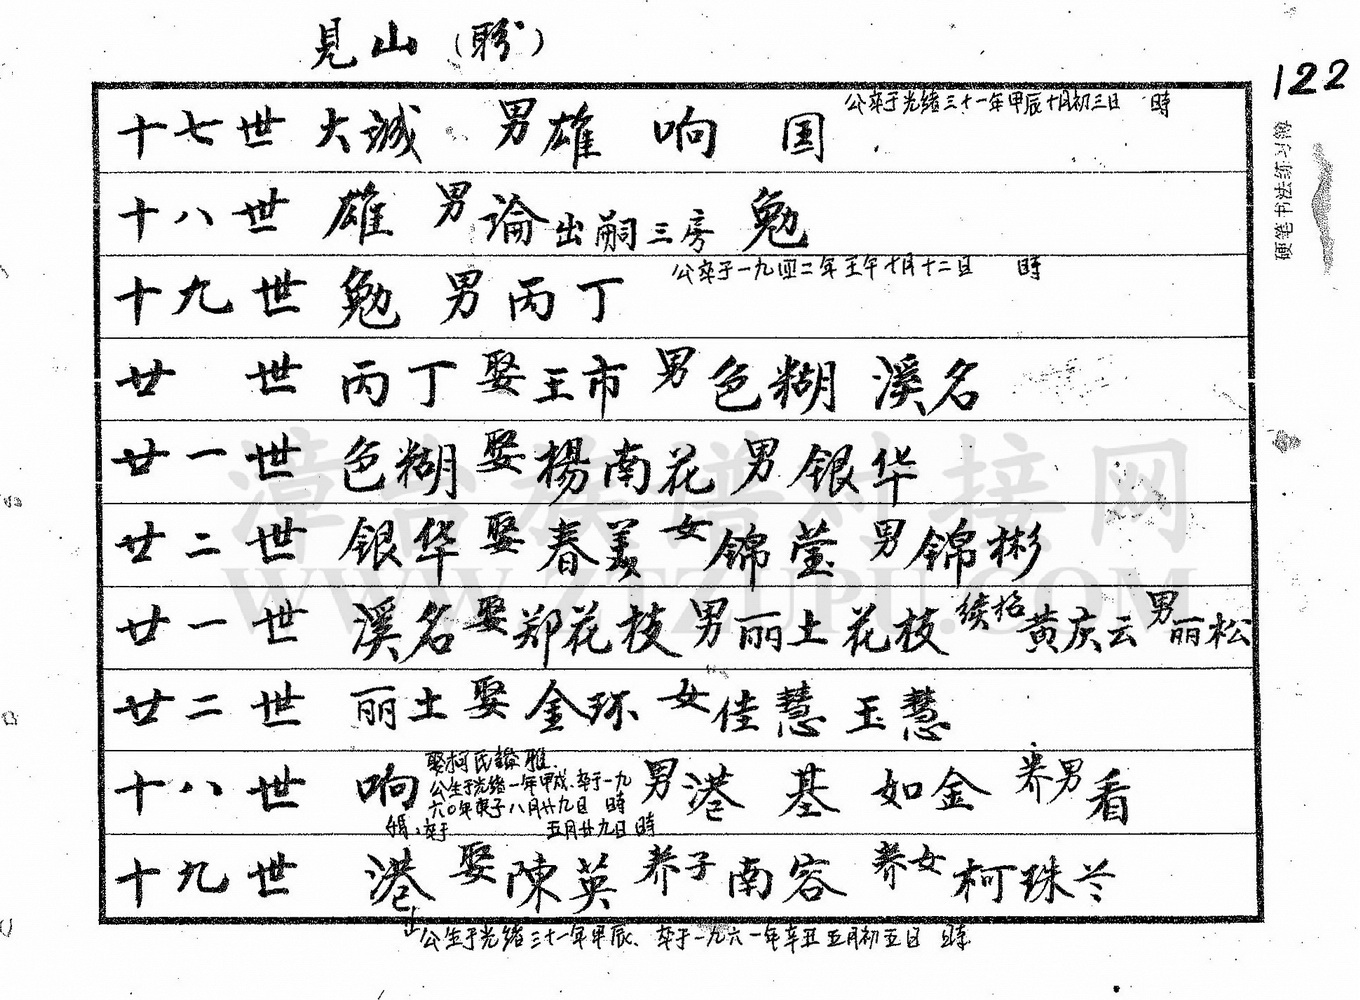 見山（聆）
122
硬笔书法练习簿
公卒于光緒三十一年甲辰十月初三日 時
十七世 大誠 男雄 响 国
十八世 雄 男論出嗣三房 勉
公卒于一九四二年壬午十月十二日 時
十九世 勉 男丙丁
廿 世 丙丁娶王市 男色糊 溪名
廿一世 色糊娶楊南花 男银华
廿二世 银华娶春美 女锦莹 男锦彬
廿一世 溪名娶郑花枝 男丽土 花枝续招黄庆云 男丽松
廿二世 丽土娶金环 女佳慧 玉慧
娶柯氏 雅
十八世 响 男港 基 如金 养男看
公生于光緒一年甲戌．卒于一九
六〇年庚子八月廿九日 時
卒于 五月廿九日 時
十九世 港 娶陳英 养子南容 养女柯珠兰
公生于光緒三十一年甲辰、卒于一九六一年辛丑五月初五日 時
漳台族谱对接网
WWW.ZTZUPU.COM